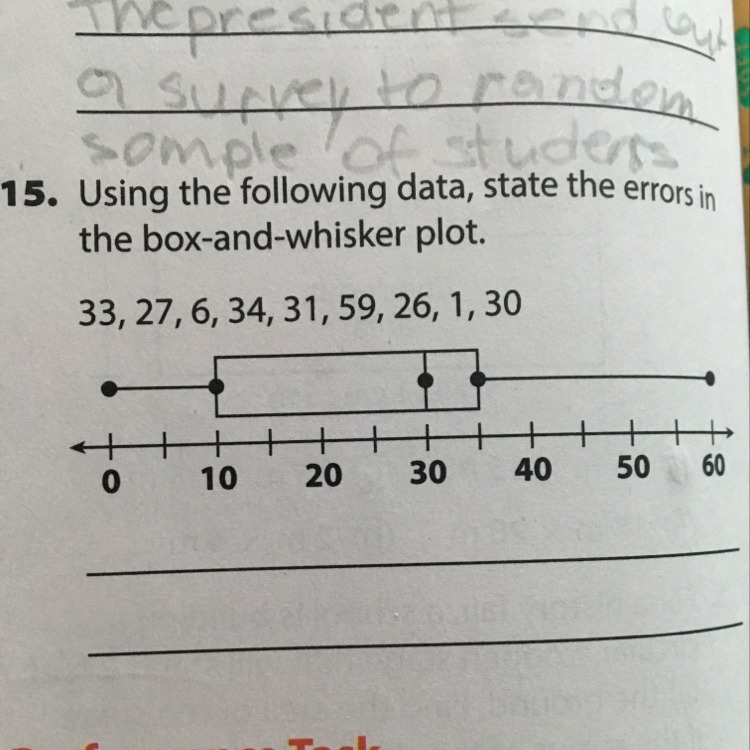 The president send out
a survey to random
somple of students
15. Using the following data, state the errors in
the box-and-whisker plot.
33, 27, 6, 34, 31, 59, 26, 1, 30
0 10 20 30 40 50 60
Task